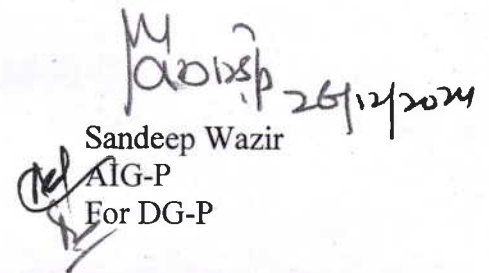 26/12/2024
Sandeep Wazir
AIG-P
For DG-P